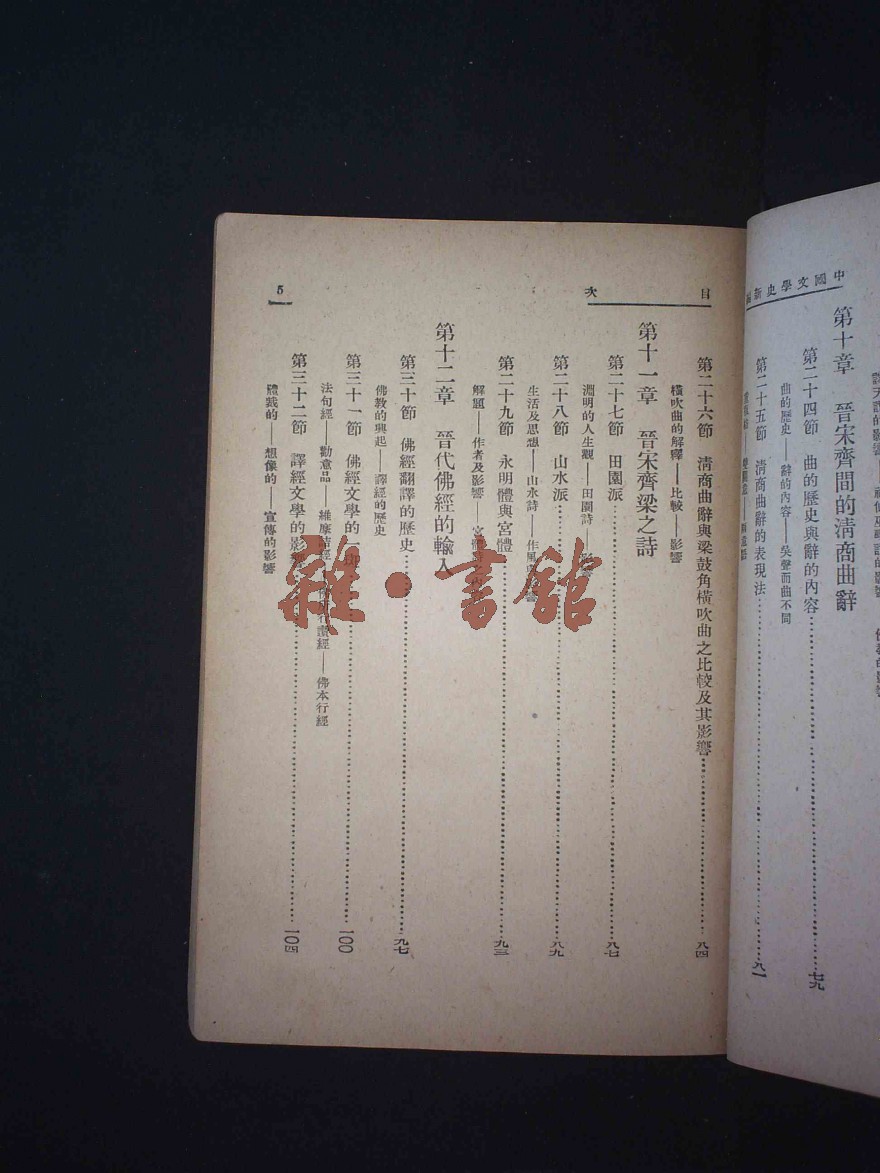 中國文學史新編
第十章　晉宋齊間的淸商曲辭
第二十四節　曲的歷史與辭的內容……七九
曲的歷史——辭的內容——吳聲西曲不同
第二十五節　淸商曲辭的表現法……八一
目次
5
第二十六節　淸商曲辭與梁鼓角橫吹曲之比較及其影響……八四
橫吹曲的解釋——比較——影響
第十一章　晉宋齊梁之詩
第二十七節　田園派……八七
淵明的人生觀——田園詩——影響
第二十八節　山水派……八九
生活及思想——山水詩——作風與影響
第二十九節　永明體與宮體……九三
解題——作者及影響——宮體
第十二章　晉代佛經的輸入
第三十節　佛經翻譯的歷史……九七
佛教的興起——譯經的歷史
第三十一節　佛經文學的一斑……一〇〇
法句經——勸意品——維摩詰經——佛所行讚經——佛本行經
第三十二節　譯經文學的影響……一〇四
體裁的——想像的——宣傳的影響
雜·書館